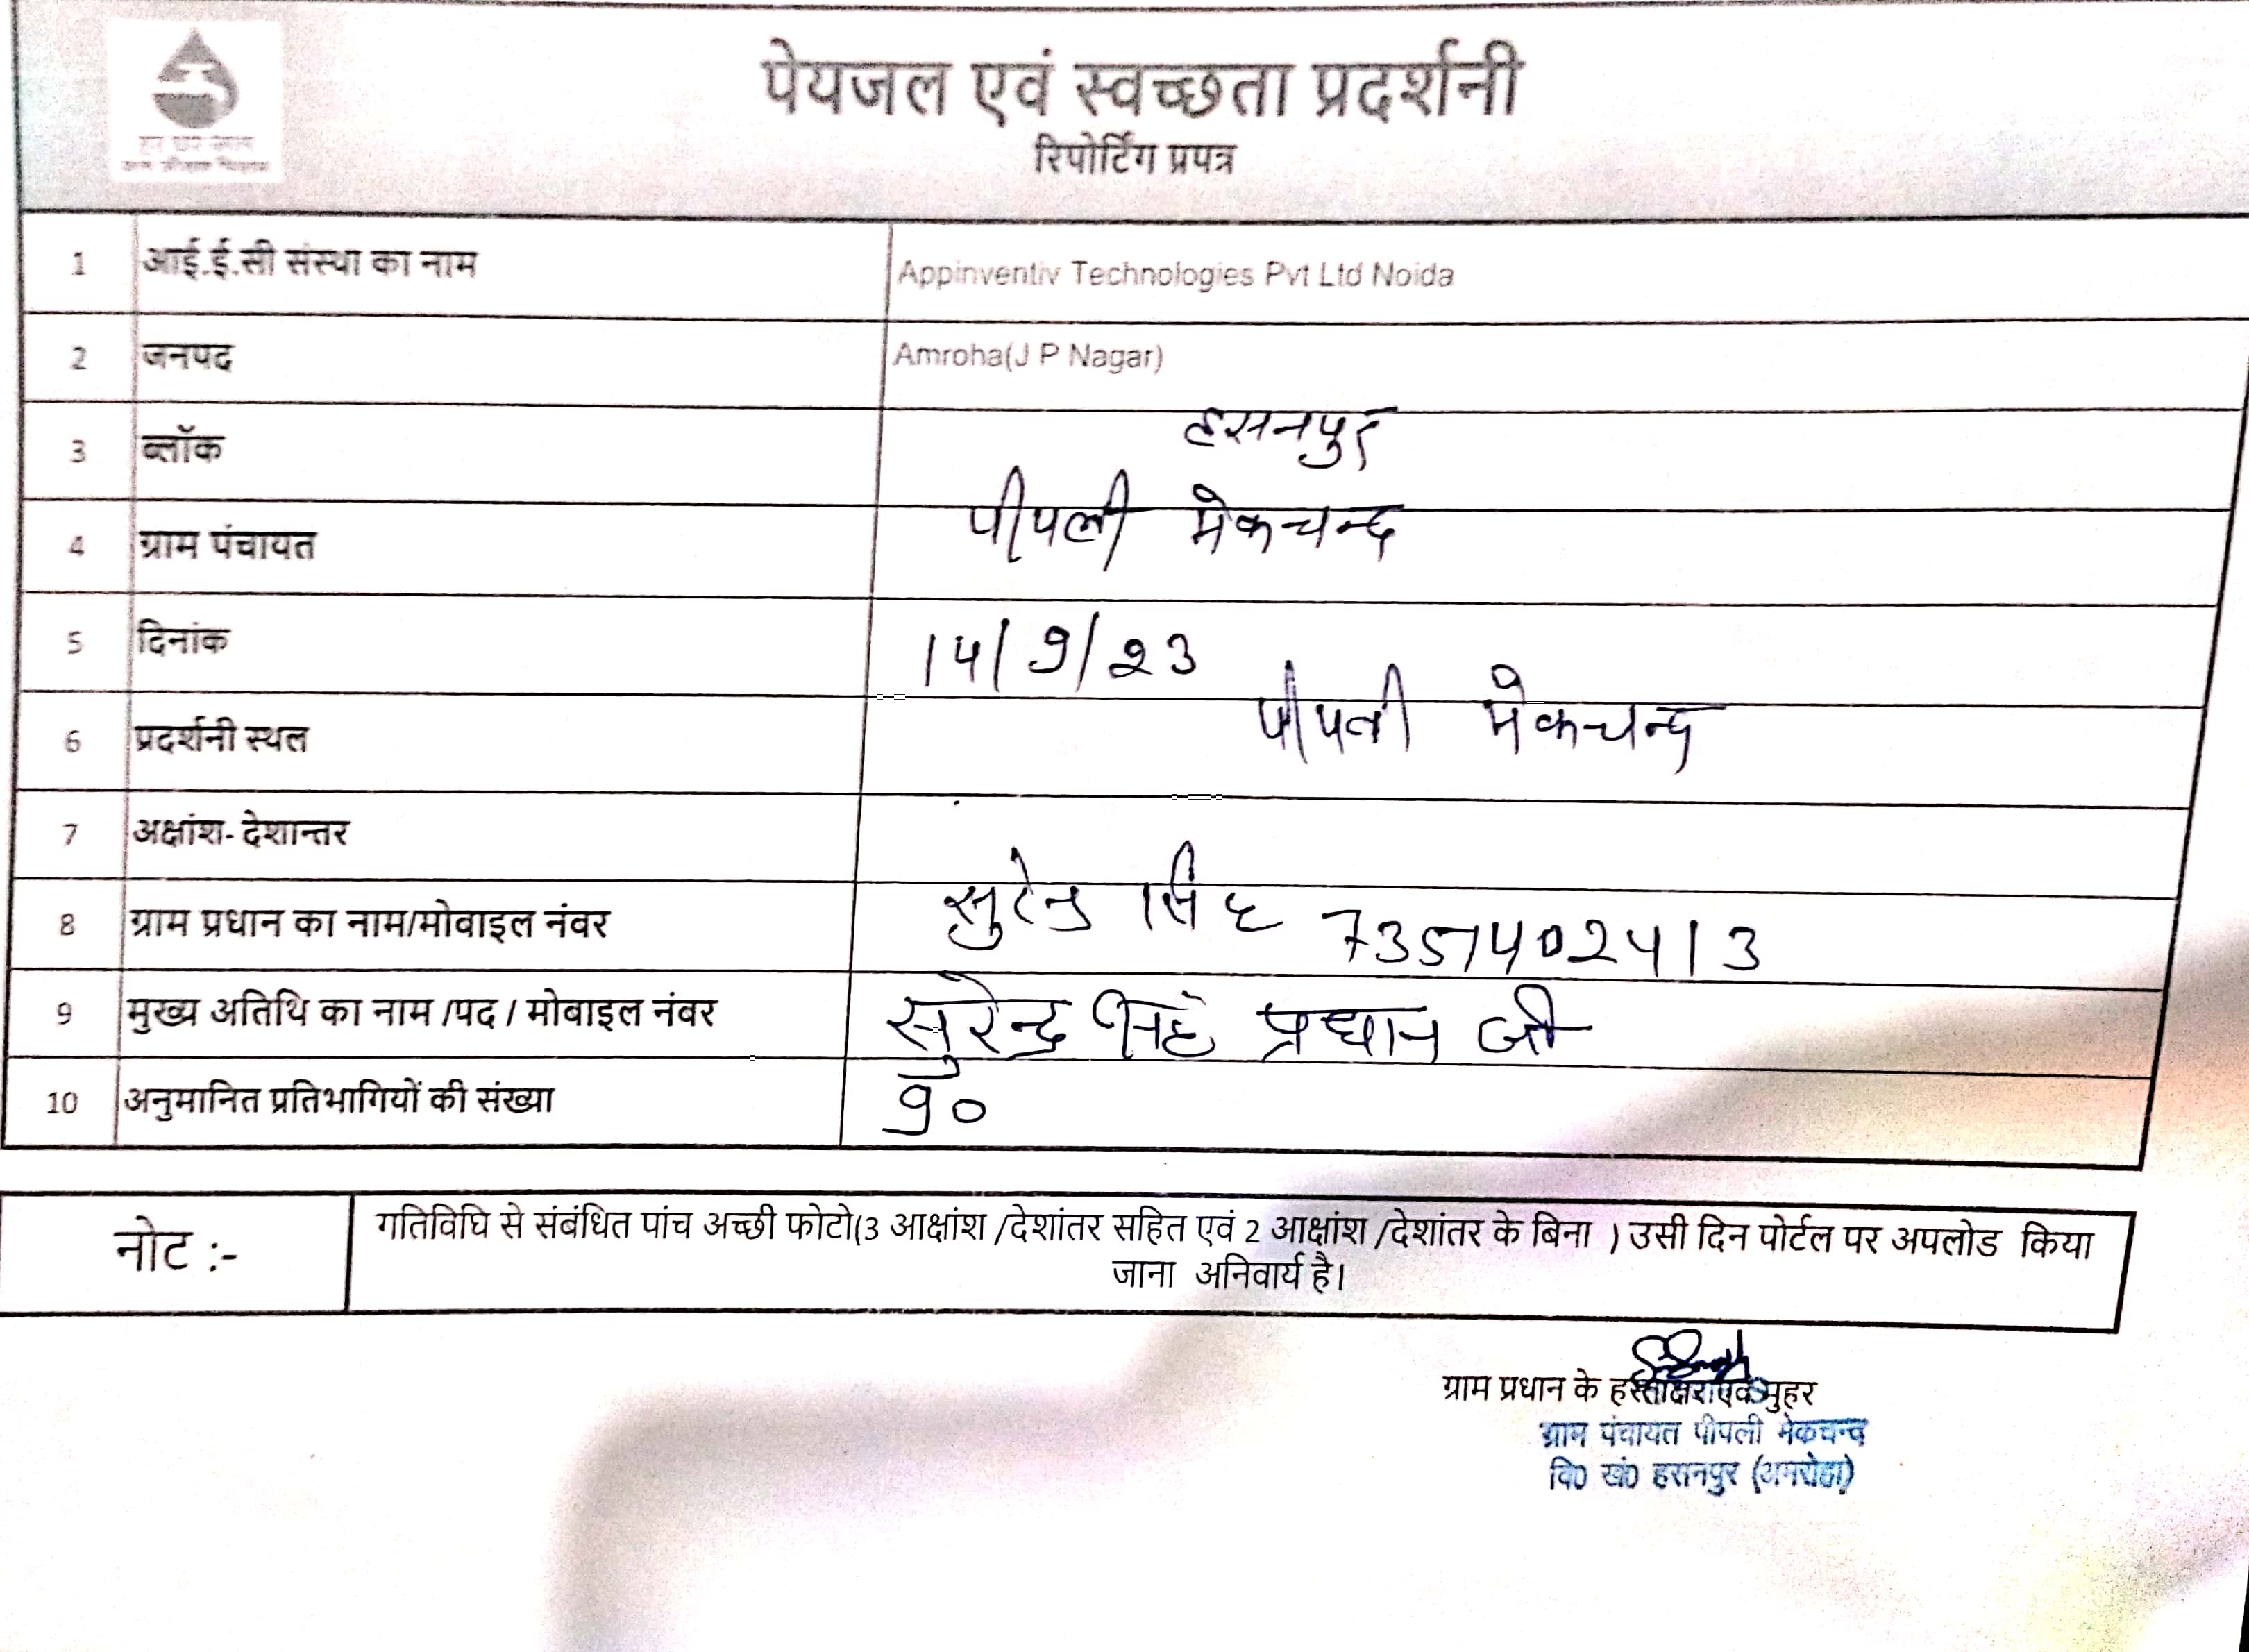 पेयजल एवं स्वच्छता प्रदर्शनी
रिपोर्टिंग प्रपत्र
1 आई.ई.सी संस्था का नाम Appinventiv Technologies Pvt Ltd Noida
2 जनपद Amroha(J P Nagar)
3 ब्लॉक हसनपुर
4 ग्राम पंचायत पीपली मेकचन्द
5 दिनांक 14/9/23
6 प्रदर्शनी स्थल पीपली मेकचन्द
7 अक्षांश- देशान्तर
8 ग्राम प्रधान का नाम/मोबाइल नंबर सुरेन्द्र सिंह 7357402413
9 मुख्य अतिथि का नाम /पद / मोबाइल नंबर सुरेन्द्र सिंह प्रधान जी
10 अनुमानित प्रतिभागियों की संख्या 90
नोट :- गतिविधि से संबंधित पांच अच्छी फोटो(3 आक्षांश /देशांतर सहित एवं 2 आक्षांश /देशांतर के बिना ) उसी दिन पोर्टल पर अपलोड किया
जाना अनिवार्य है।
ग्राम प्रधान के हस्ताक्षर एवं मुहर
ग्राम पंचायत पीपली मेकचन्द
वि० खं० हसनपुर (अमरोहा)